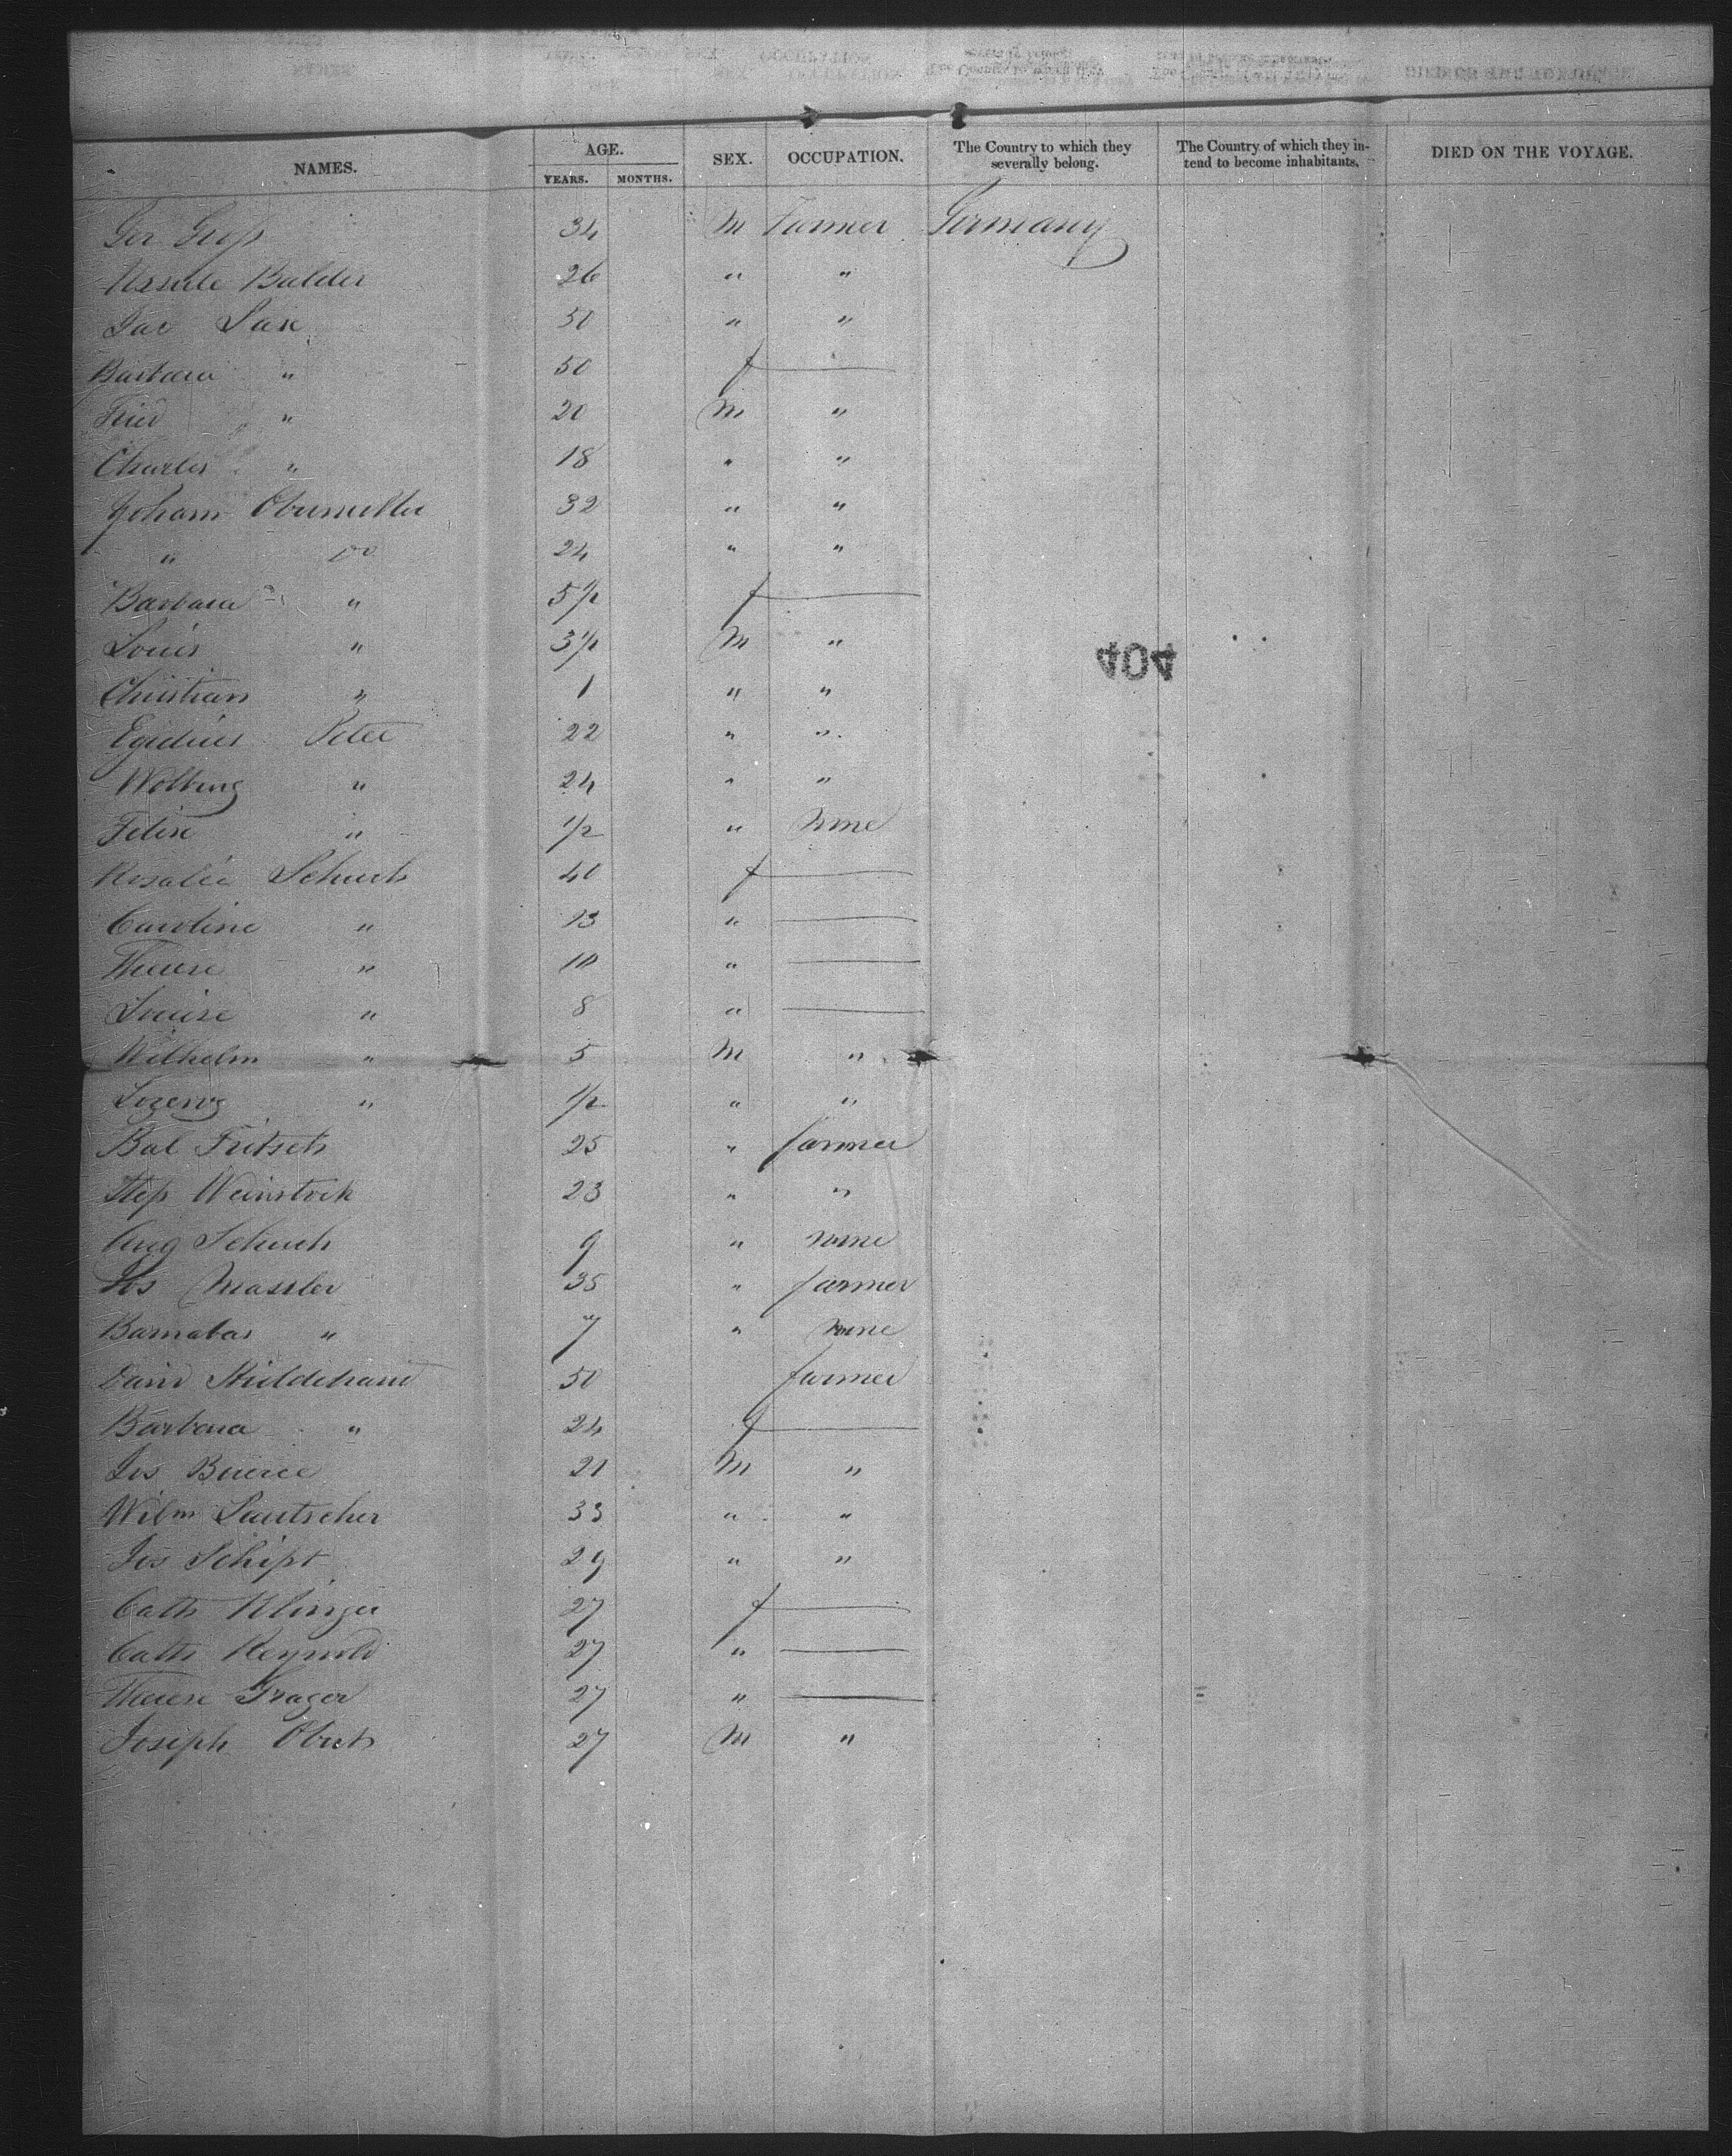 NAMES. AGE. SEX. OCCUPATION. The Country to which they severally belong. The Country of which they intend to become inhabitants. DIED ON THE VOYAGE.
YEARS. MONTHS.
34 M Farmer Germany
Balder 26 " "
50 " "
Barbara " 50 f —
" 20 M "
Charles " 18 " "
Johann Obermiller 32 " "
" do 24 " "
Barbara " 5 1/2 f —
Louis " 3 1/2 M "
Christian " 1 " "
Egidius Peter 22 " "
Wolburg " 24 " "
" 1/2 " none
Rosalie Schuch 40 f —
Caroline " 13 " —
Therese " 10 " —
Louise " 8 " —
Wilhelm " 5 M "
" 1/2 " "
Bal Fritsch 25 " farmer
23 " "
Aug Schuch 9 " none
Jos Massler 35 " farmer
Barnabas " 7 " none
David Hildebrand 50 farmer
Barbara " 24 f —
Jos 21 M "
Wilm Lautscher 33 " "
Jos Schipt 29 " "
Cath Klinger 27 f —
Cath Reynold 27 " —
Therese Trager 27 " —
Joseph 27 M "
404